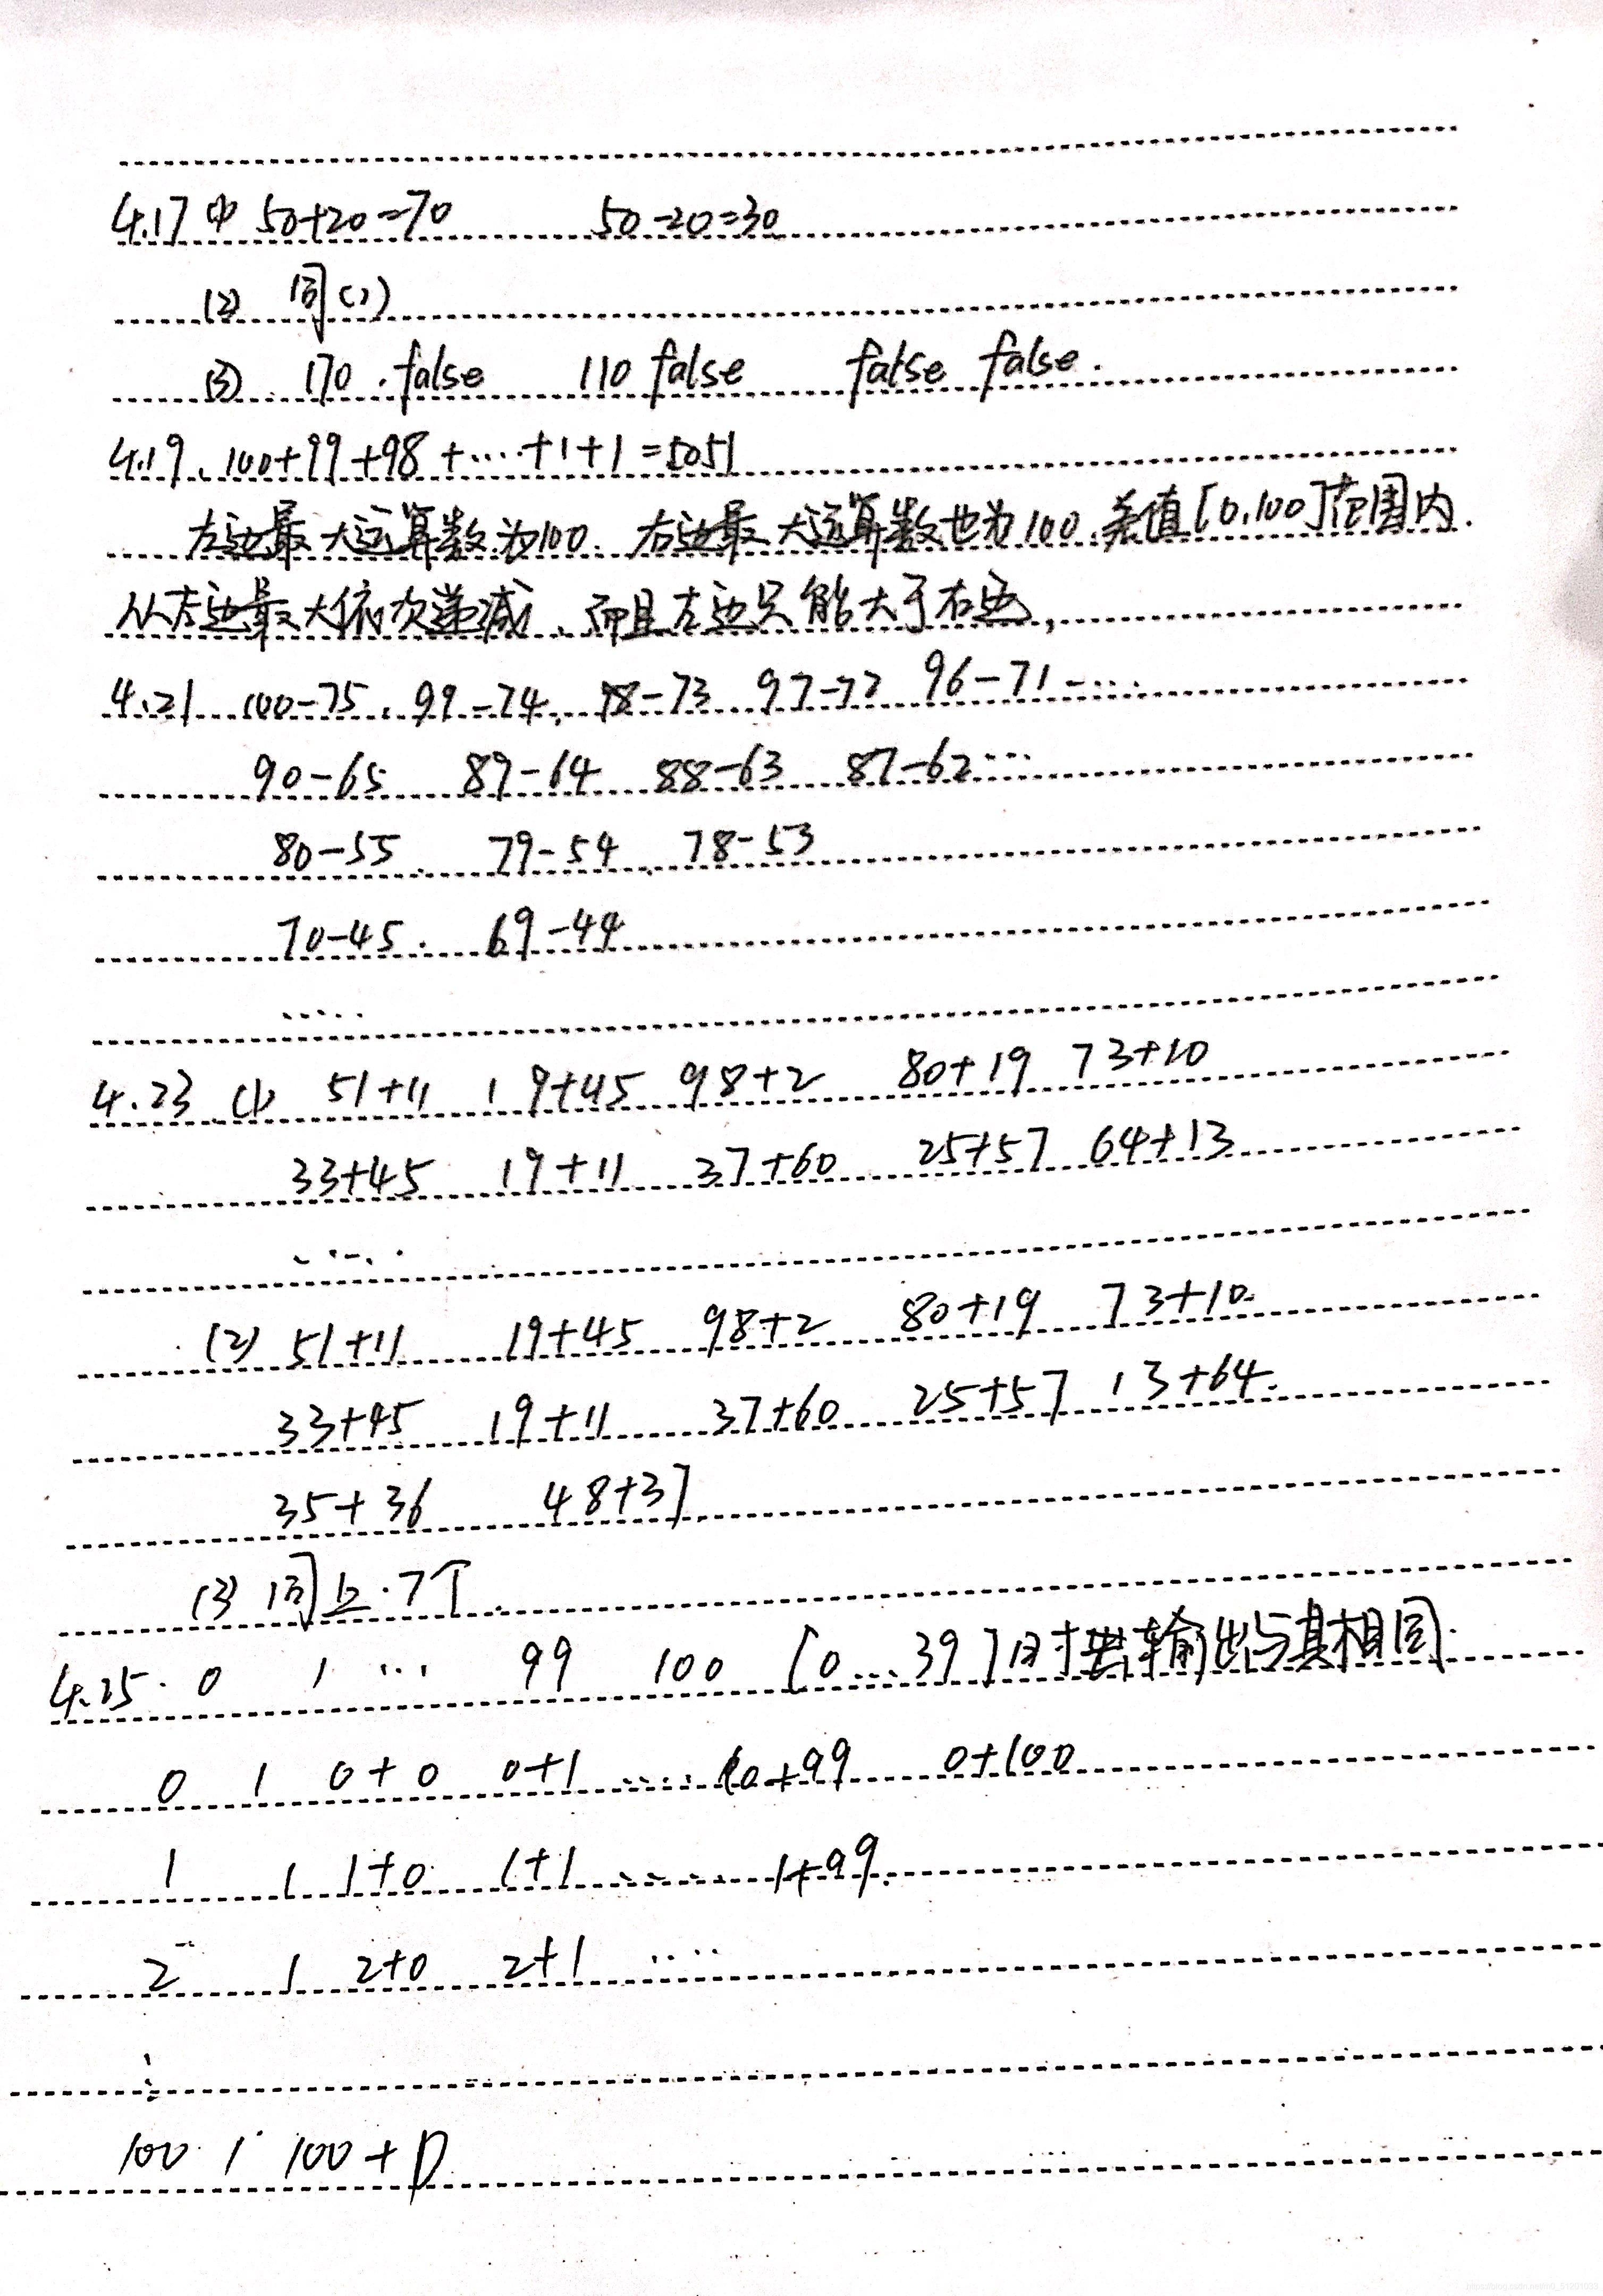 4.17 (1) 50+20=70 50-20=30
(2) 同(1)
(3) 170.false 110 false false false.
4.19、100+99+98+...+1+1=5051
左边最大运算数为100. 右边最大运算数也为100.差值[0,100]范围内.
从左边最大依次递减、而且左边只能大于右边,
4.21 100-75.99-74.98-73 97-72 96-71-...
90-65 89-64 88-63 87-62...
80-55 79-54 78-53
70-45. 69-44
.....
4.23 (1) 51+11 19+45 98+2 80+19 73+10
33+45 19+11 37+60 25+57 64+13
.....
(2) 51+11 19+45 98+2 80+19 73+10.
33+45 19+11 37+60 25+57 13+64.
35+36 48+37.
(3) 同上.7个.
4.25. 0 1 ... 99 100 [0...39]时 输出与其相同.
0 1 0+0 0+1 ..... 0+99 0+100
1 1 1+0 1+1 ...... 1+99.
2 1 2+0 2+1 ....
⋮
100 1 100+0